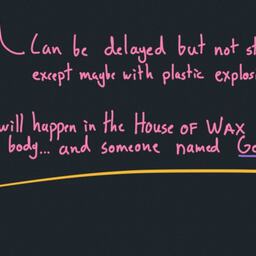 Can be delayed but not
except maybe with plastic
will happen in the House of Wax
body... and someone named